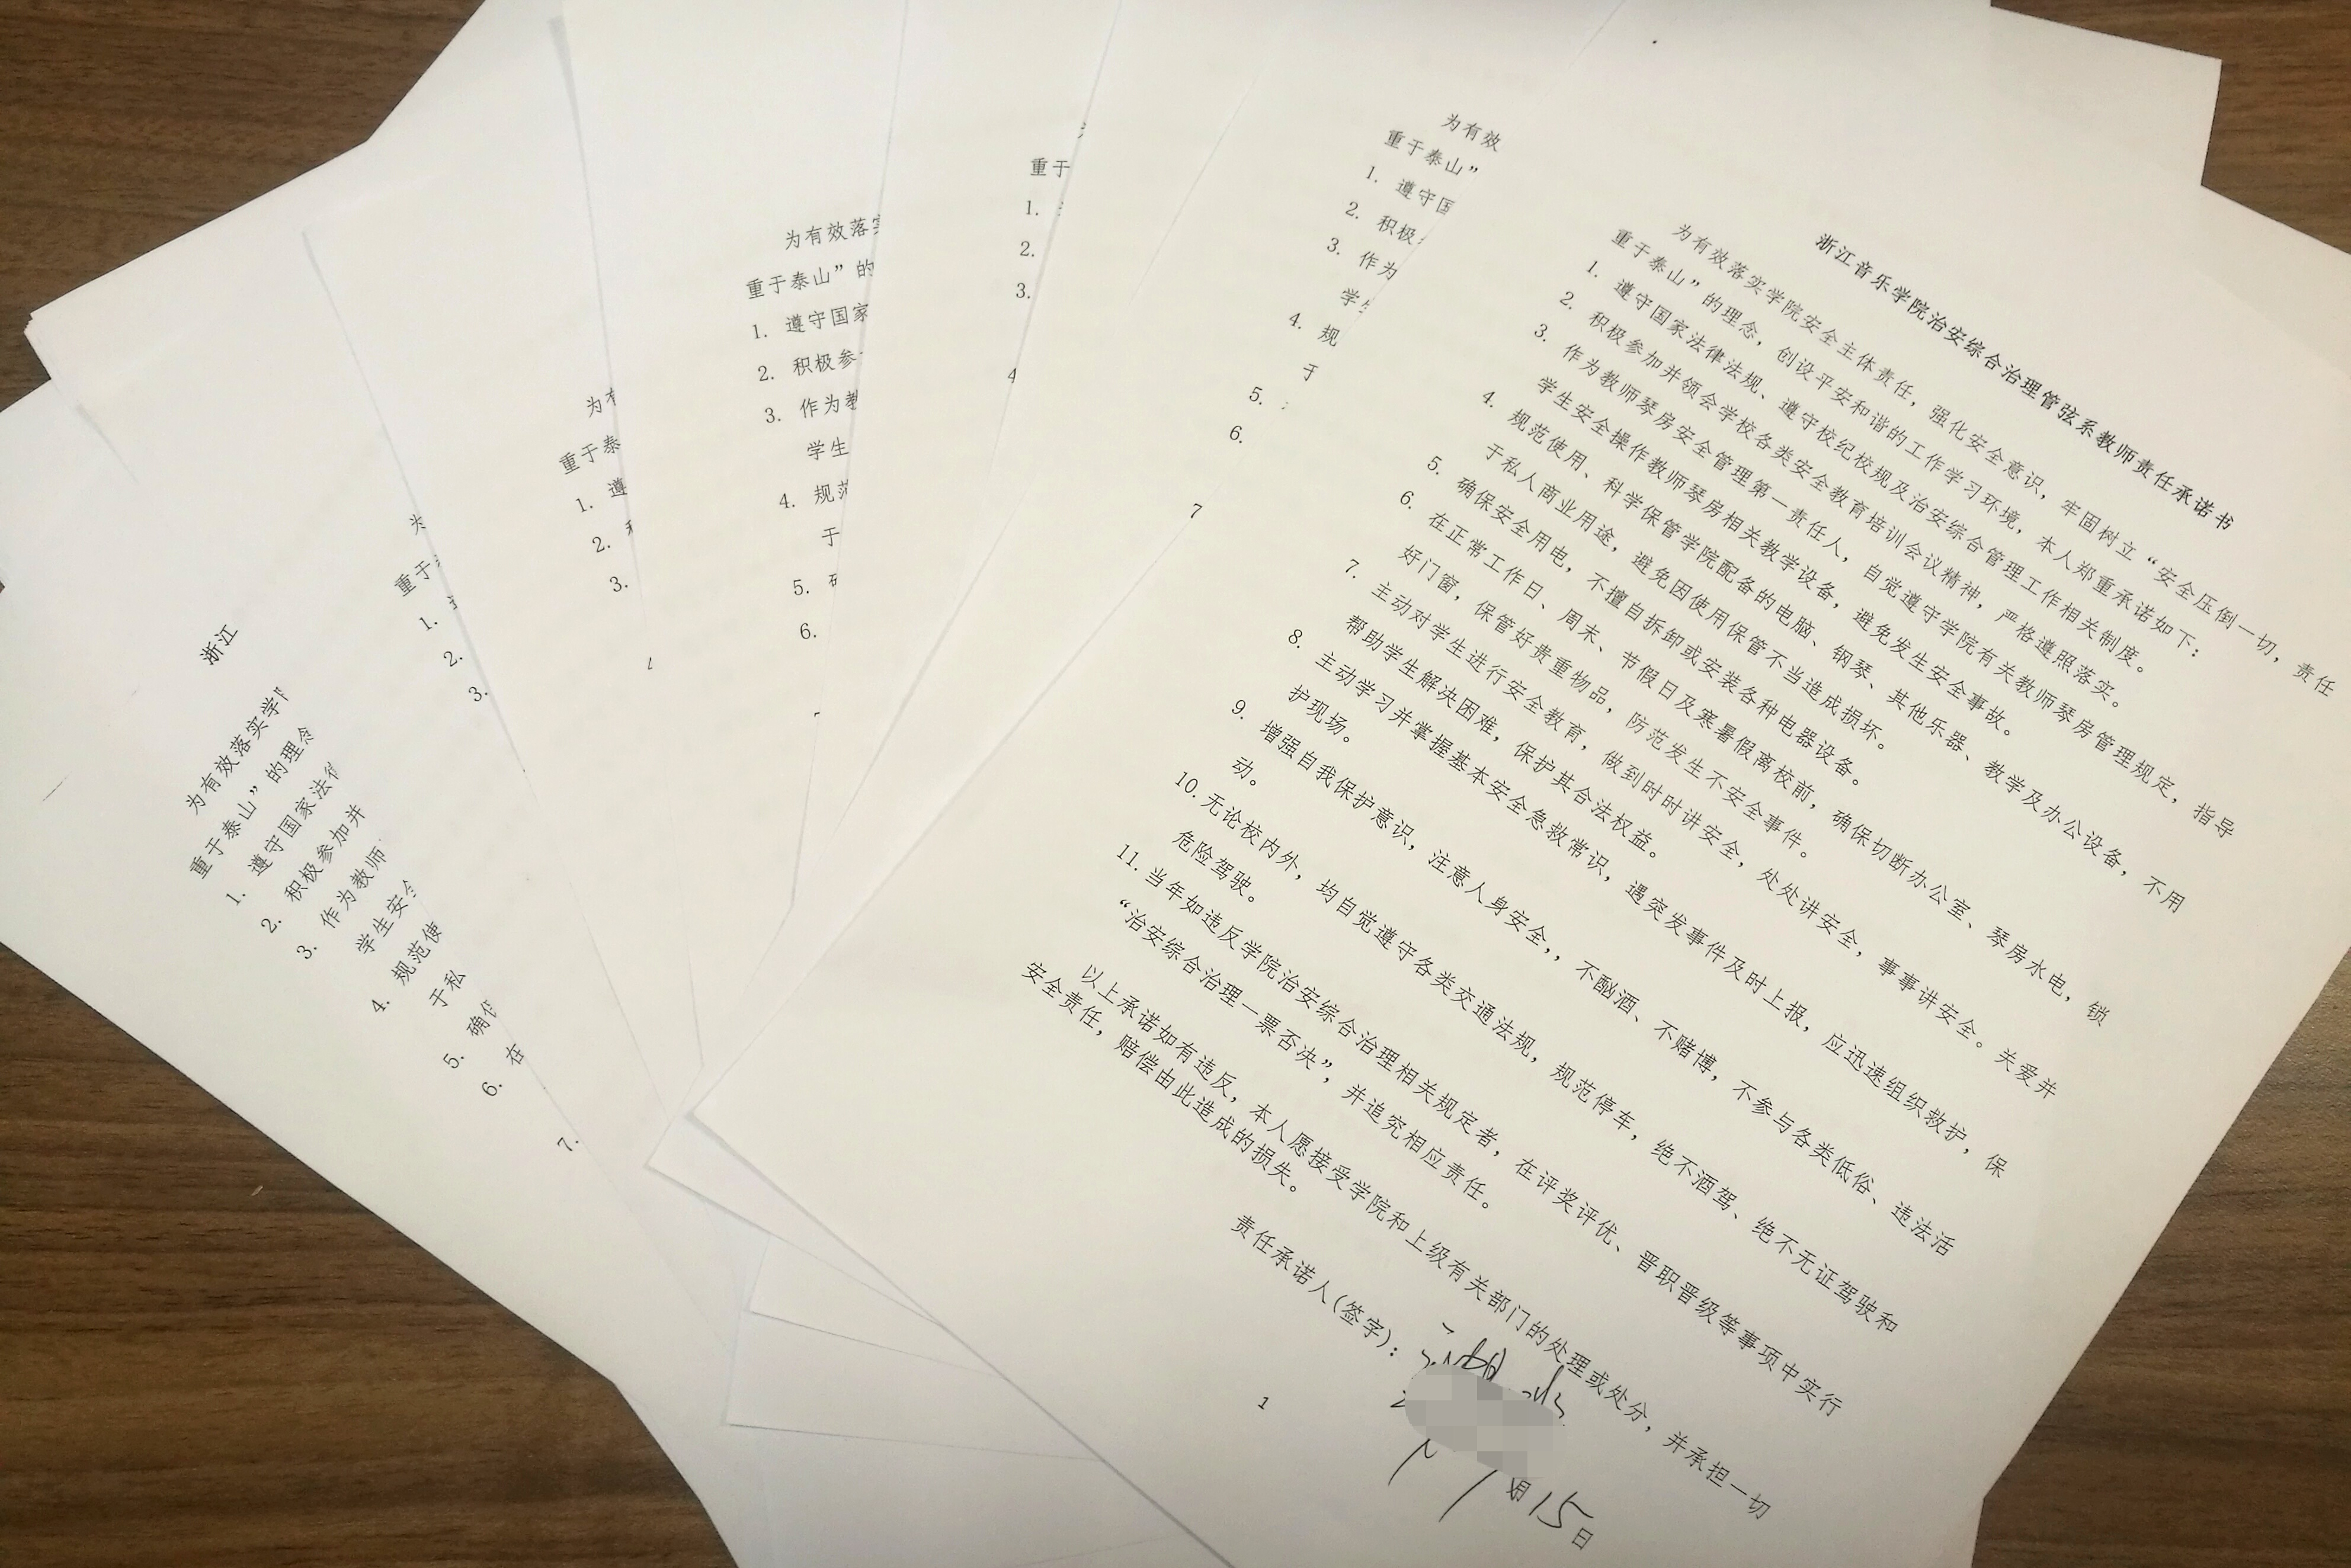 浙江音乐学院治安综合治理管弦系教师责任承诺书
为有效落实学院安全主体责任，强化安全意识，牢固树立“安全压倒一切，责任
重于泰山”的理念，创设平安和谐的工作学习环境，本人郑重承诺如下：
1. 遵守国家法律法规、遵守校纪校规及治安综合管理工作相关制度。
2. 积极参加并领会学校各类安全教育培训会议精神，严格遵照落实。
3. 作为教师琴房安全管理第一责任人，自觉遵守学院有关教师琴房管理规定，指导
学生安全操作教师琴房相关教学设备，避免发生安全事故。
4. 规范使用、科学保管学院配备的电脑、钢琴、其他乐器、教学及办公设备，不用
于私人商业用途，避免因使用保管不当造成损坏。
5. 确保安全用电，不擅自拆卸或安装各种电器设备。
6. 在正常工作日、周末、节假日及寒暑假离校前，确保切断办公室、琴房水电，锁
好门窗，保管好贵重物品，防范发生不安全事件。
7. 主动对学生进行安全教育，做到时时讲安全，处处讲安全，事事讲安全。关爱并
帮助学生解决困难，保护其合法权益。
8. 主动学习并掌握基本安全急救常识，遇突发事件及时上报，应迅速组织救护，保
护现场。
9. 增强自我保护意识，注意人身安全，，不酗酒、不赌博，不参与各类低俗、违法活
动。
10. 无论校内外，均自觉遵守各类交通法规，规范停车，绝不酒驾、绝不无证驾驶和
危险驾驶。
11. 当年如违反学院治安综合治理相关规定者，在评奖评优、晋职晋级等事项中实行
“治安综合治理一票否决”，并追究相应责任。
以上承诺如有违反，本人愿接受学院和上级有关部门的处理或处分，并承担一切
安全责任，赔偿由此造成的损失。
责任承诺人(签字)：
月15日
1
为有效
重于泰山”
1. 遵守国
2. 积极
3. 作为
学生
4. 规
于
5.
6.
7
重于
1.
2.
3.
4
为有效落实
重于泰山”的
1. 遵守国家
2. 积极参
3. 作为教
学生
4. 规范
于
5.
6.
为有
重于泰
1. 遵
2.
3.
为
重于
1.
2.
3.
浙江
为有效落实学
重于泰山”的理念
1. 遵守国家法律
2. 积极参加并
3. 作为教师
学生安全
4. 规范使
于私
5. 确保
6. 在
7.